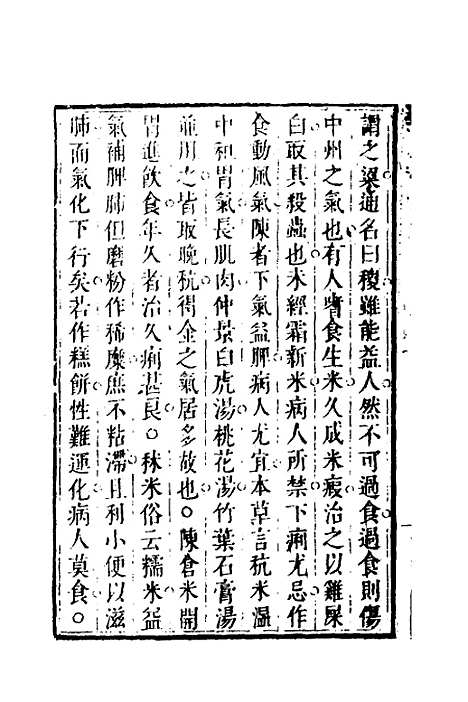 謂之粱通名曰稷雖能益人然不可過食過食則傷
中州之氣也有人嗜食生米久成米瘕治之以雞屎
白取其殺蟲也米經霜新米病人所禁下痢尤忌作
食動風氣陳者下氣益脾病人尤宜本草言秔米溫
中和胃氣長肌肉仲景白虎湯桃花湯竹葉石膏湯
並用之皆取晚秔得金之氣居多故也。陳倉米開
胃進飲食年久者治久痢甚良。秫米俗云糯米益
氣補脾肺但磨粉作稀糜庶不粘滯且利小便以滋
肺而氣化下行矣若作糕餅性難運化病人莫食。